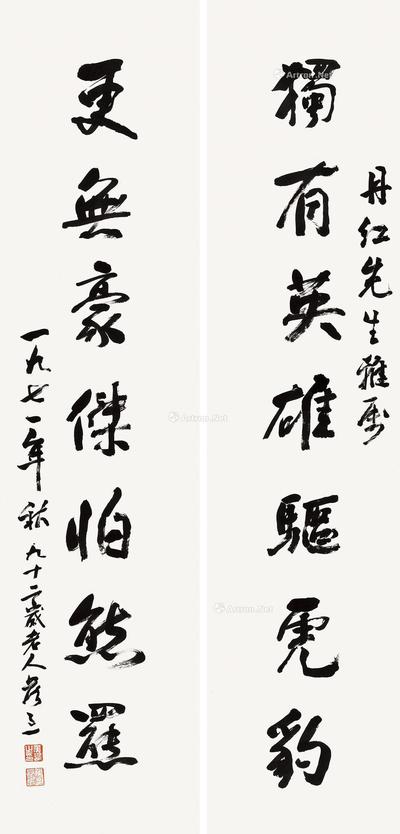 丹红先生雅属
獨有英雄驅虎豹
更無豪傑怕熊羆
一九七一年秋九十二歲老人蒼言
Artron.Net
Artron.Net
Artron.Net